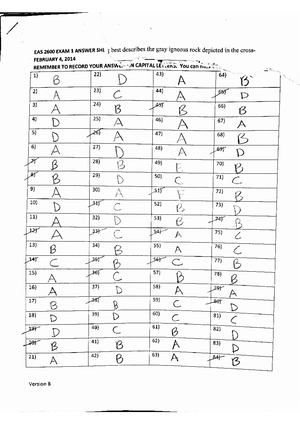 EAS 2600 EXAM 1 ANSWER SH
best describes the gray igneous rock depicted in the cross-
FEBRUARY 4, 2014
REMEMBER TO RECORD YOUR ANSW IN CAPITAL LETTERS. You can
1) B 22) D 43) A 64) B
2) A 23) C 44) A 65) D
3) A 24) B 45) B 66) B
4) D 25) A 46) A 67) A
5) D 26) A 47) A 68) B
6) A 27) D 48) A 69) D
7) B 28) B 49) E 70) B
8) B 29) D 50) C 71) C
9) A 30) A 51) F 72) D
10) D 31) C 52) B 73) D
11) A 32) D 53) B 74) B
12) A 33) C 54) A 75) C
13) B 34) B 55) A 76) C
14) C 35) B 56) C 77) B
15) A 36) C 57) B 78) B
16) A 37) D 58) A 79) A
17) B 38) B 59) C 80) D
18) D 39) D 60) C 81) C
19) D 40) C 61) B 82) D
20) B 41) B 62) A 83) D
21) A 42) B 63) A 84) B
Version B